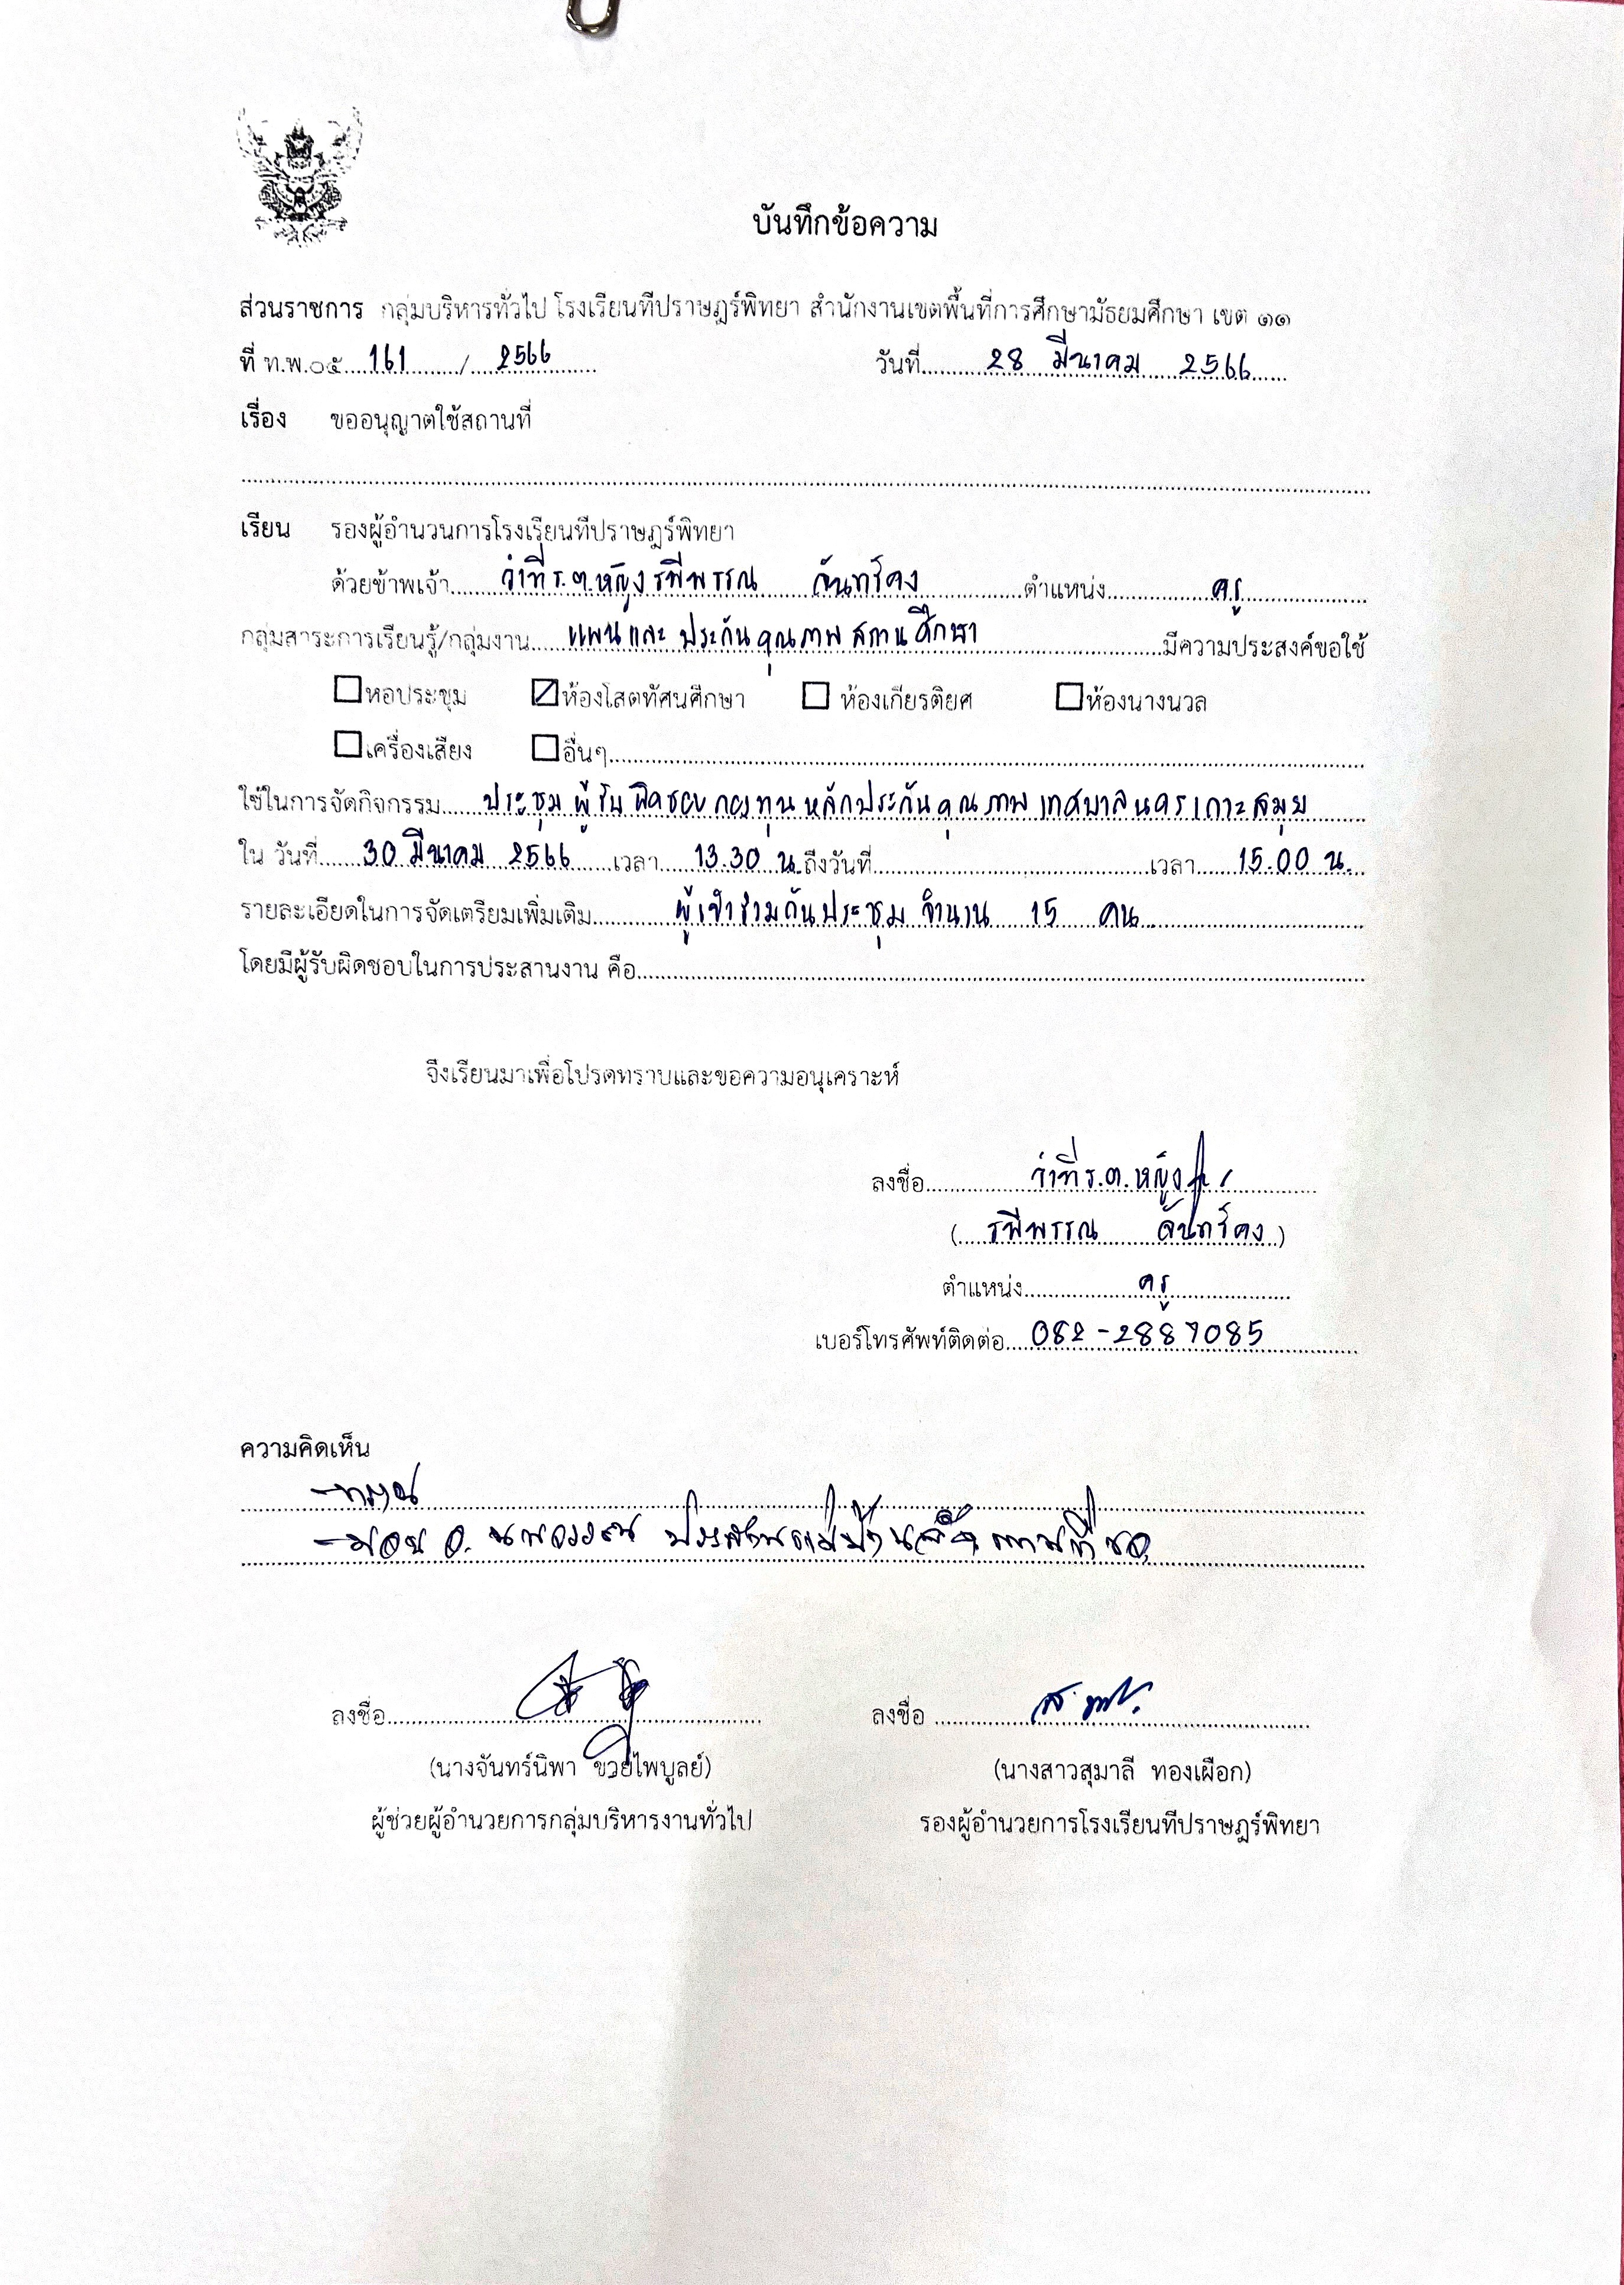 บันทึกข้อความ
ส่วนราชการ กลุ่มบริหารทั่วไป โรงเรียนทีปราษฎร์พิทยา สำนักงานเขตพื้นที่การศึกษามัธยมศึกษา เขต ๑๑
ที่ ท.พ.๐๕.....161........./....2566.......... วันที่.........28 มีนาคม 2566......
เรื่อง ขออนุญาตใช้สถานที่
เรียน รองผู้อำนวนการโรงเรียนทีปราษฎร์พิทยา
ด้วยข้าพเจ้า.......ว่าที่ร.ต.หญิง รพีพรรณ จันทร์คง................ตำแหน่ง...............ครู..................
กลุ่มสาระการเรียนรู้/กลุ่มงาน.....แผนและประกันคุณภาพสถานศึกษา..............................มีความประสงค์ขอใช้
☐หอประชุม ☑ห้องโสตทัศนศึกษา ☐ ห้องเกียรติยศ ☐ห้องนางนวล
☐เครื่องเสียง ☐อื่นๆ....................................................
ใช้ในการจัดกิจกรรม.....ประชุมผู้รับผิดชอบกองทุนหลักประกันคุณภาพเทศบาลนครเกาะสมุย
ใน วันที่......30 มีนาคม 2566......เวลา.....13.30 น.ถึงวันที่..............................เวลา......15.00 น.
รายละเอียดในการจัดเตรียมเพิ่มเติม............ผู้เข้าร่วมกันประชุม จำนวน 15 คน..............................
โดยมีผู้รับผิดชอบในการประสานงาน คือ....................................................
จึงเรียนมาเพื่อโปรดทราบและขอความอนุเคราะห์
ลงชื่อ...............ว่าที่ร.ต.หญิง
(....รพีพรรณ จันทร์คง..)
ตำแหน่ง................ครู..................
เบอร์โทรศัพท์ติดต่อ....082-2887085..............
ความคิดเห็น
-ทราบ
-มอบ อ. ประสานแม่บ้าน ตามที่ขอ
ลงชื่อ.................................... ลงชื่อ ....................................
(นางจันทร์นิพา ขวยไพบูลย์) (นางสาวสุมาลี ทองเผือก)
ผู้ช่วยผู้อำนวยการกลุ่มบริหารงานทั่วไป รองผู้อำนวยการโรงเรียนทีปราษฎร์พิทยา